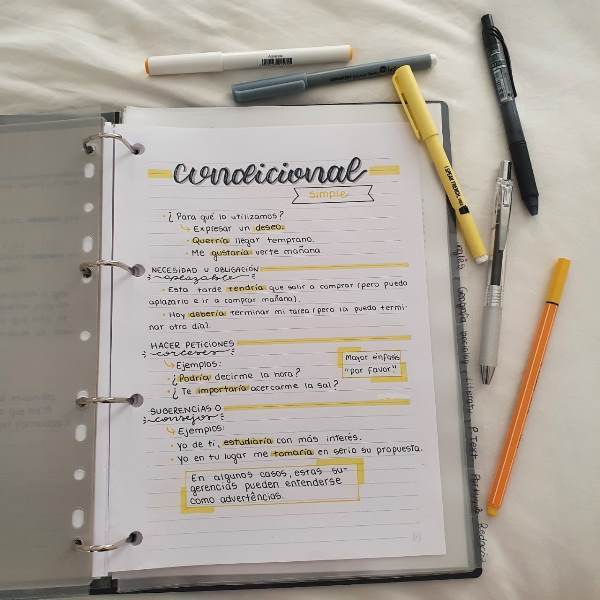 condicional
simple
· ¿Para qué lo utilizamos?
Expresar un deseo.
· Querría llegar temprano.
· Me gustaría verte mañana.
NECESIDAD U OBLIGACIÓN
aplazable
· Esta tarde tendría que salir a comprar (pero puedo
aplazarlo e ir a comprar mañana).
· Hoy debería terminar mi tarea (pero la puedo termi-
nar otro día).
HACER PETICIONES
corteses
Ejemplos:
· ¿Podría decirme la hora?
· ¿Te importaría acercarme la sal?
Mayor énfasis
"por favor"
SUGERENCIAS O
consejos
Ejemplos:
· Yo de ti, estudiaría con más interés.
· Yo en tu lugar me tomaría en serio su propuesta.
En algunos casos, estas su-
gerencias pueden entenderse
como advertências.